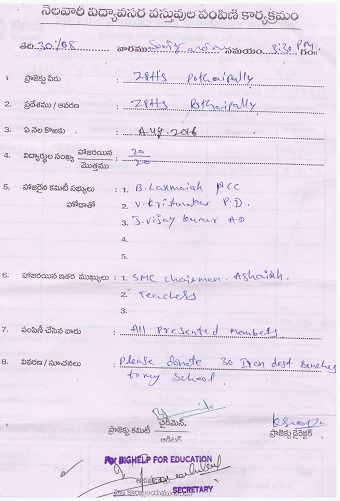 నెలవారీ విద్యావసర వస్తువుల పంపిణీ కార్యక్రమం
తేది: 30/08 వారము సమయం 3:30 P.M గం॥
1. ప్రాజెక్టు పేరు : ZPHS Pothaipally
2. ప్రదేశము / ఆవరణ : ZPHS Pothaipally
3. ఏ నెల కొఱకు : Aug. 2016
4. విద్యార్థుల సంఖ్య హాజరయిన : 20
మొత్తము 20
5. హాజరైన కమిటీ సభ్యులు : 1. B. Laxmaiah PCC
హోదాతో 2. V. Krishnabar P.D.
3. J. Vijay kumar AD
4.
5.
6. హాజరయిన ఇతర ముఖ్యులు : 1. SMC chairman. Ashaiah.
2. Teachers
3.
7. పంపిణీ చేసిన వారు : All presented members
8. వివరణ / సూచనలు : please donate 30 Iron dest benches
to my school.
ప్రాజెక్టు కమిటీ చైర్‌మెన్ ప్రాజెక్టు డైరెక్టర్
ఆడిటర్
For BIGHELP FOR EDUCATION
SECRETARY